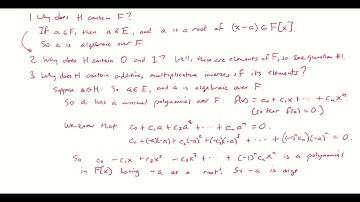 1. Why does H contain F?
If a∈F, then a∈E, and a is a root of (x-a)∈F[x].
So a is algebraic over F.
2. Why does H contain 0 and 1? Well, these are elements of F, so see question #1.
3. Why does H contain additive, multiplicative inverses of its elements?
Suppose a∈H. So a∈E, and a is algebraic over F.
So a has a minimal polynomial over F. f(x) = c₀ + c₁x + ... + cₙxⁿ
(so that f(a) = 0.)
We know that c₀ + c₁a + c₂a² + ... + cₙaⁿ = 0.
So c₀ - c₁x + c₂x² - c₃x³ + ... + (-1)ⁿcₙxⁿ is a polynomial
in F[x] having -a as a root! So -a is alge